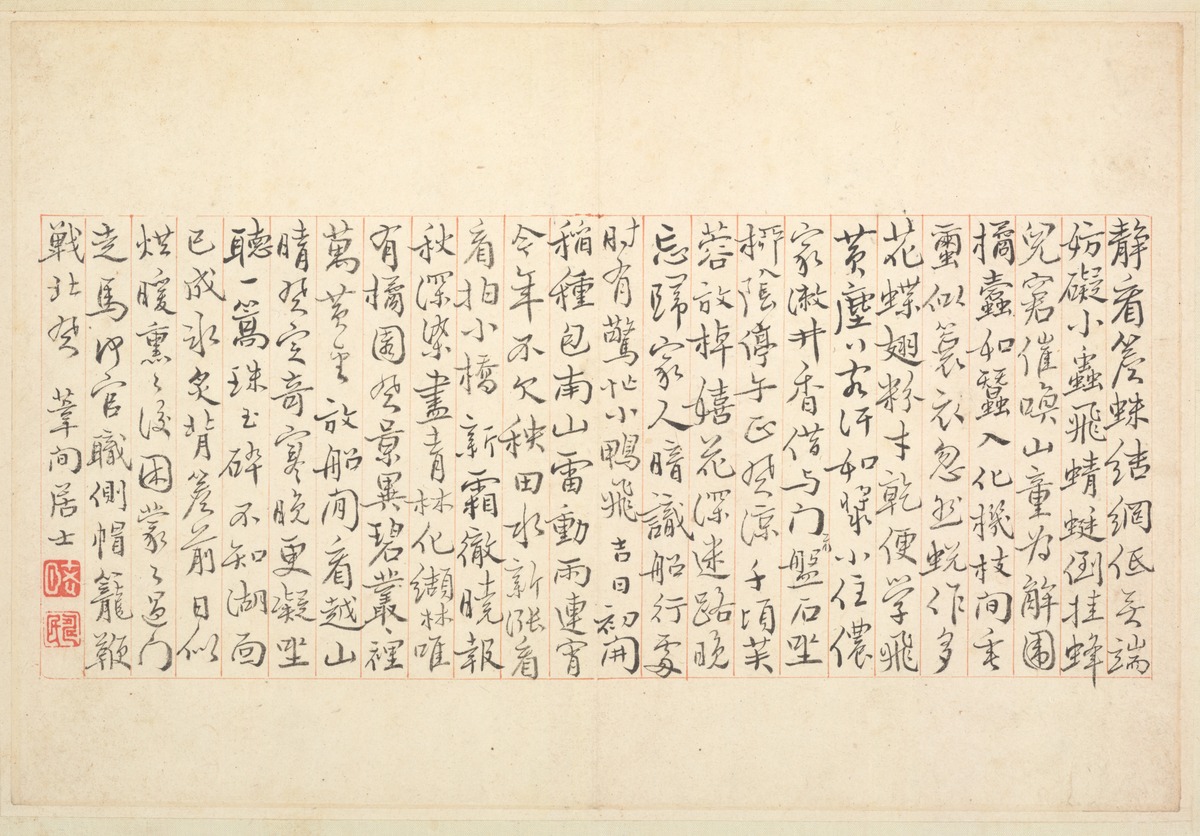 靜看簷蛛結網低无端
妨礙小蟲飛蜻蜓倒挂蜂
兒窘催喚山童为解圍
橘蠹如蠶入化機枝间垂
蠒似蓑衣忽然蛻作多
花蝶翅粉才乾便学飛
黃塵行客汗如漿小住儂
家漱井香借与门前盤石坐
柳陰停午正風涼千頃芙
蓉放棹嬉花深迷路晚
忘歸家人暗識船行處
时有驚忙小鴨飛吉日初開
稻種包南山雷動雨連宵
今年不欠秧田水新漲看
看拍小橋新霜徹曉報
秋深染盡青林化纈林唯
有橘園風景異碧叢叢裡
萬黃金放船閒看越山
晴風定奇寒晚更凝坐
聽一篙珠玉碎不知湖面
已成氷炙背簷前日似
烘暖熏々後困蒙々過门
走馬何官職側帽籠鞭
戰北風 葦间居士